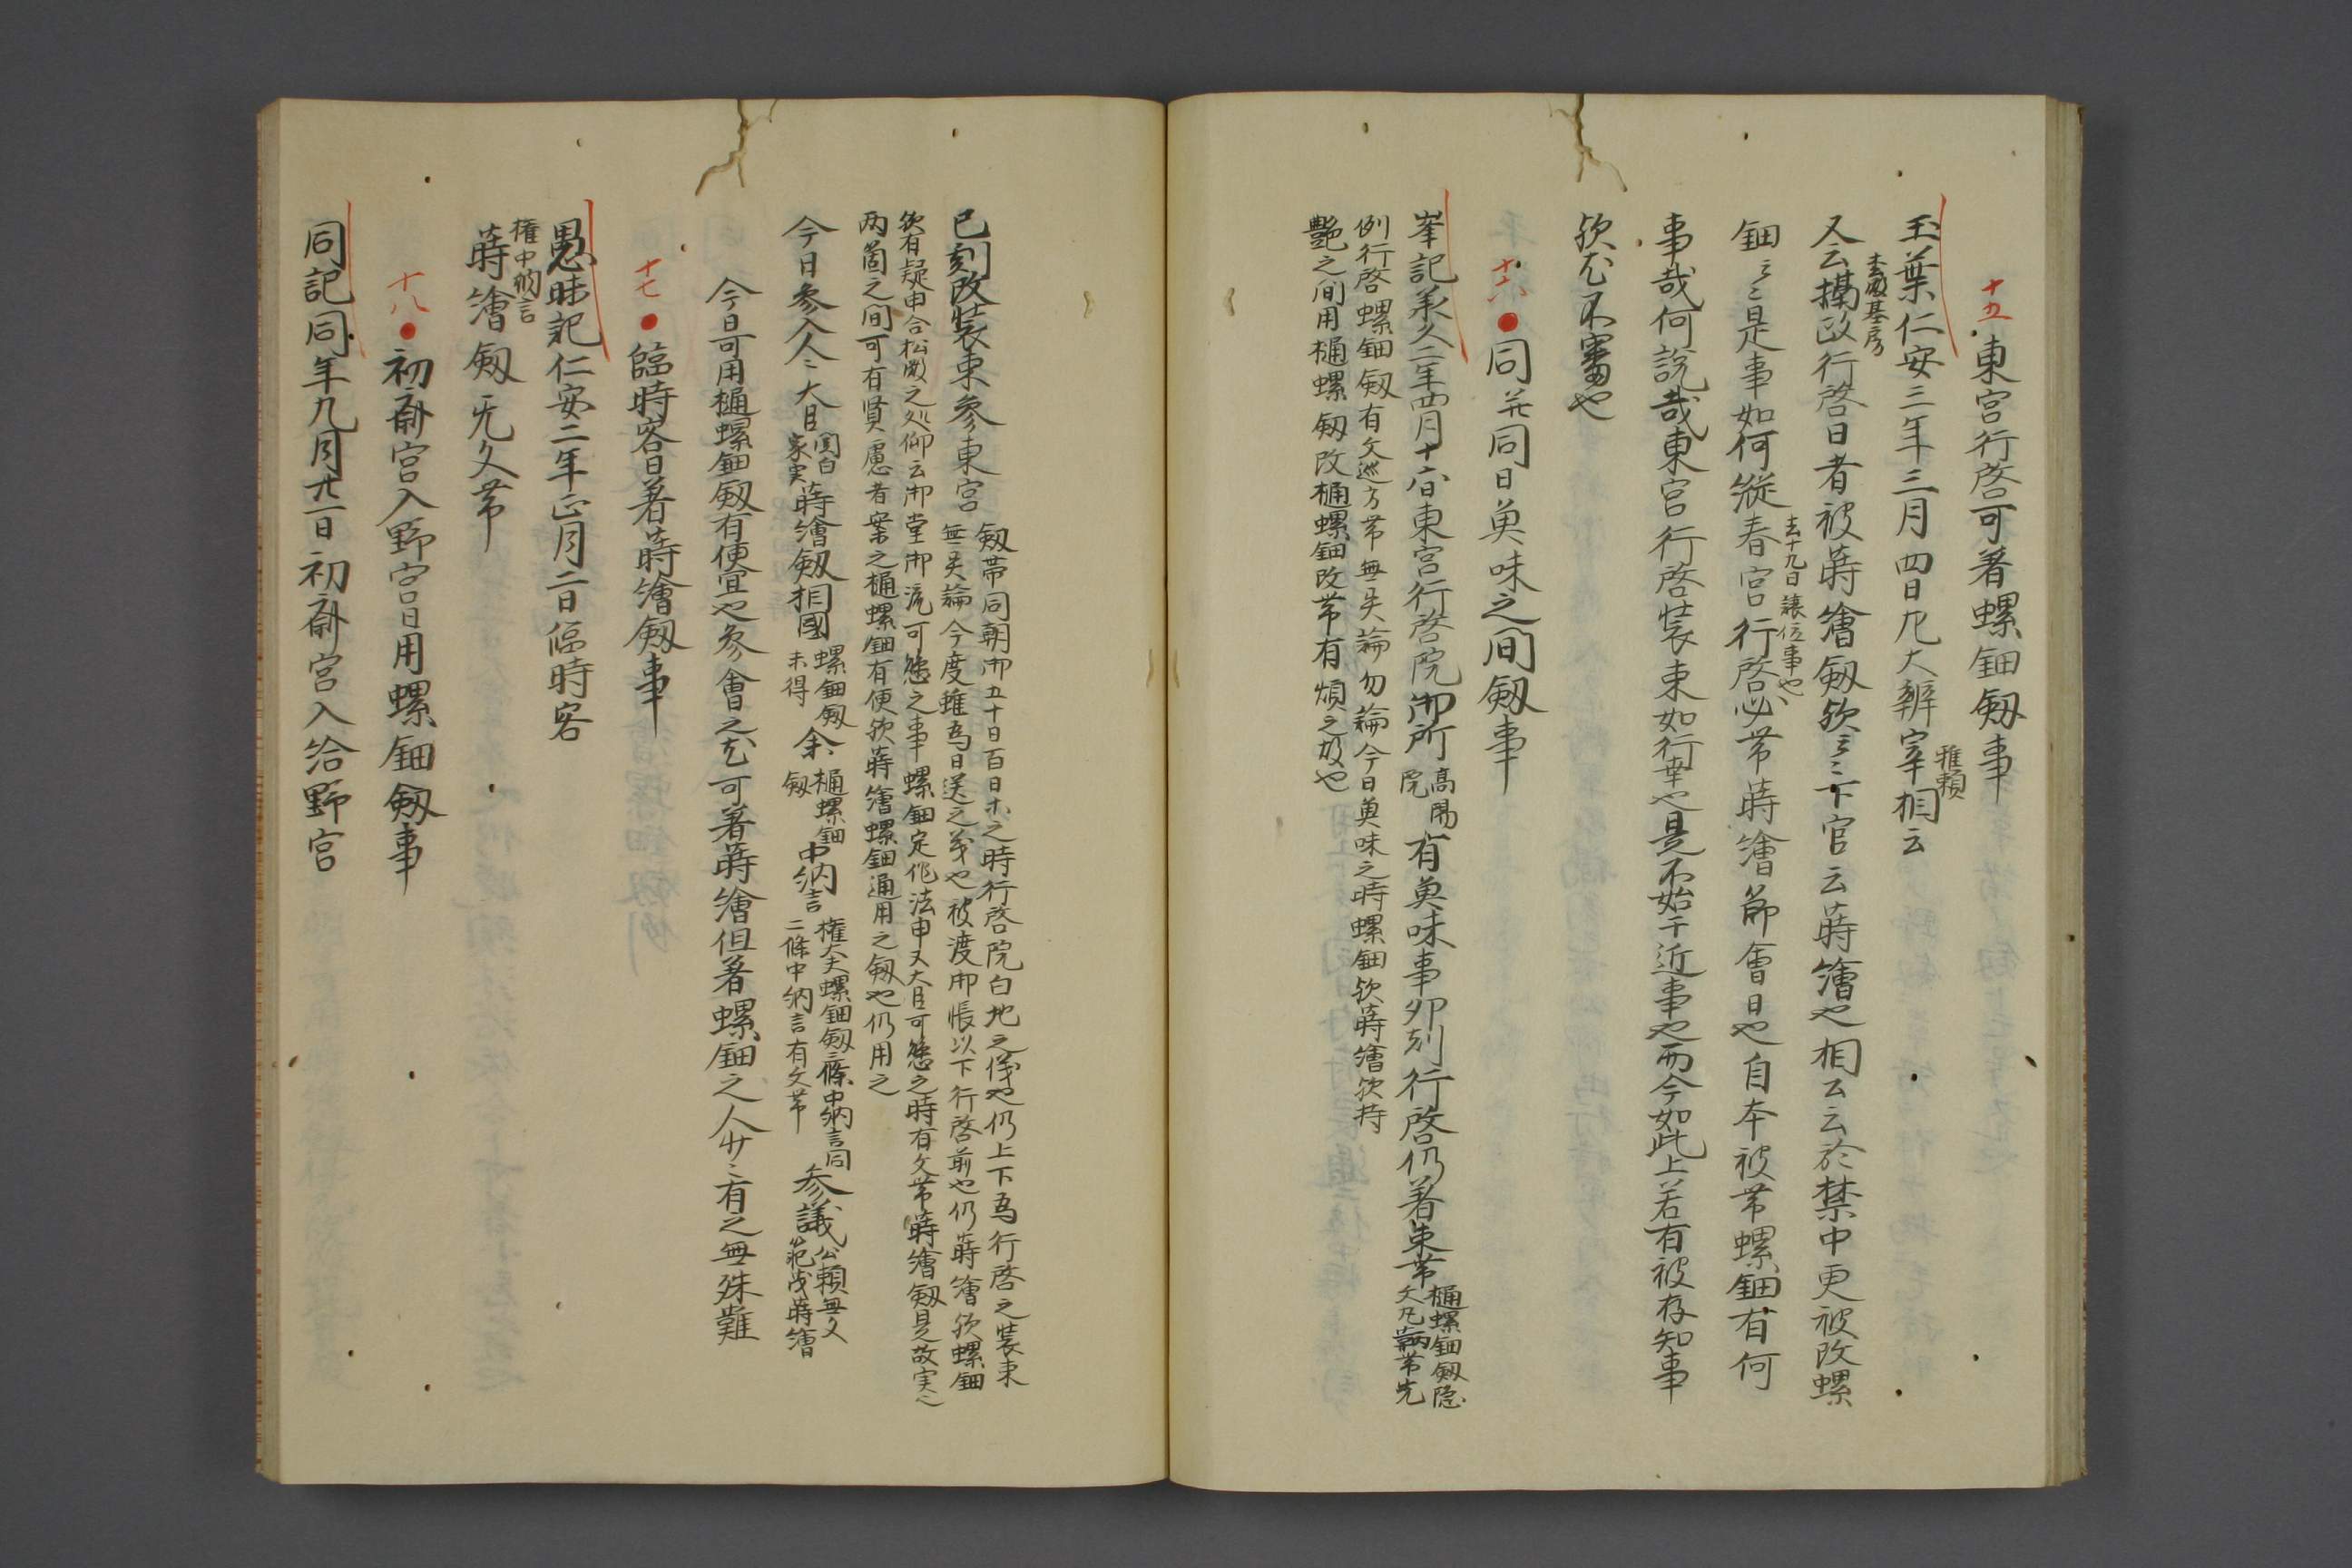 十五
東宮行啓可著螺鈿釼事
玉葉仁安三年三月四日九大辨宰相云
雅頼
又云摂政行啓日者被蒔繪釼欤云々下官云蒔繪也相云云於禁中更被改螺
基房
鈿云々是事如何縦春宮行啓必帯蒔繪節會日也自本被帯螺鈿有何
去十九日譲位事也
事哉何説哉東宮行啓装束如行幸也是不始于近事也而今如此上若有被存知事
欤尤不審也
十六
同并同日奠味之間釼事
峯記承久二年四月十六日東宮行啓院御所
高陽院
有奠味事卯刻行啓仍著束帯
樋螺鈿釼隠
文丸鞆帯先
例行啓螺鈿釼有文巡方帯無異論勿論今日奠味之時螺鈿欤蒔繪欤持
艶之間用樋螺釼改樋螺鈿改帯有煩之故也
巳刻改装束参東宮
釼帯同朝御五十日百日ホ之時行啓院白地之儀也仍上下為行啓之装束
無異論今度雖為日送之義也被渡御帳以下行啓前也仍蒔繪欤螺鈿
欤有疑申合松殿之処仰云御堂御流可懸之事螺鈿定作法申又大臣可懸之時有文帯蒔繪釼是故実也
両箇之間可有賢慮者案之樋螺鈿有便欤蒔繪螺鈿通用之釼也仍用之
今日参入人々大臣
関白
家実
蒔繪釼相國
螺鈿釼
未得
余
樋螺鈿
釼
中納言
権大夫螺鈿釼三條中納言同
二條中納言有文帯
参議
公頼無文
範茂蒔繪
今日可用樋螺鈿釼有便宜也参會之尤可著蒔繪但著螺鈿之人少々有之無殊難
十七
臨時客日著蒔繪釼事
愚昧記仁安二年正月二日臨時客
権中納言
蒔繪釼无文帯
十八
初齋宮入野宮日用螺鈿釼事
同記同年九月廿一日初齋宮入給野宮